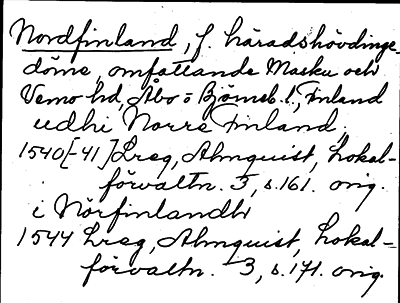 Nordfinland, f. häradshövdinge-
döme, omfattande Masku och
Vemo hd, Åbo o Björneb. l., Finland
udhi Norre Finland,
1540[-41] Lreg, Almquist, Lokal-
förvaltn. 3, s. 161. orig.
i Nörfinlandh
1544 Lreg, Almquist, Lokal-
förvaltn. 3, s. 171. orig.